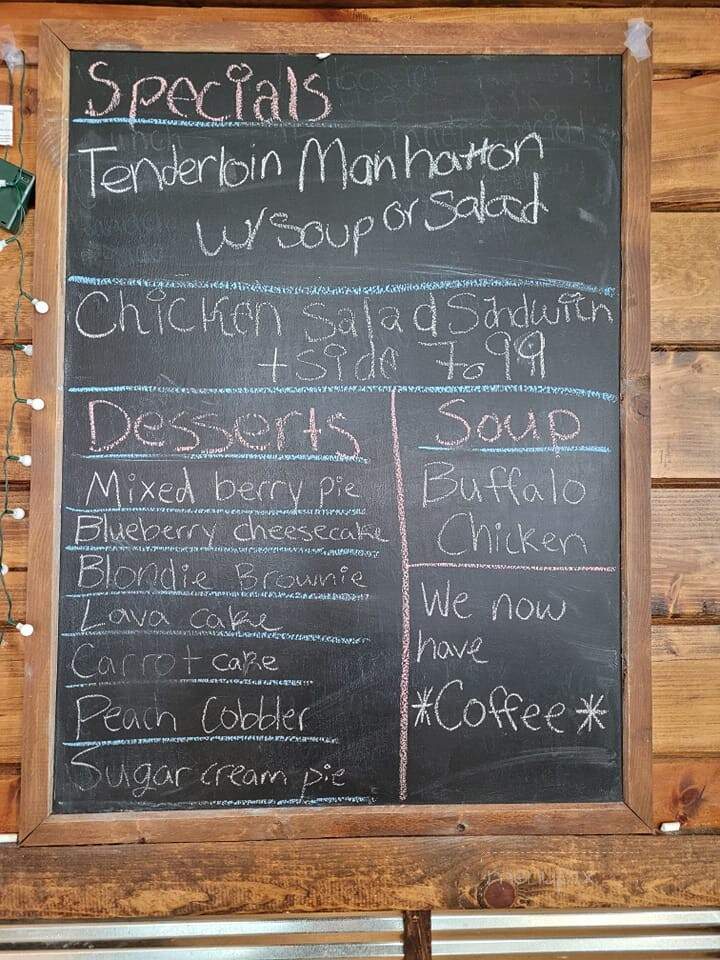 Specials
Tenderloin Manhatton
w/ Soup or Salad
Chicken Salad Sandwich
+ side 7.99
Desserts
Mixed berry pie
Blueberry cheesecake
Blondie Brownie
Lava cake
Carrot cake
Peach Cobbler
Sugar cream pie
Soup
Buffalo
Chicken
We now
have
*Coffee*